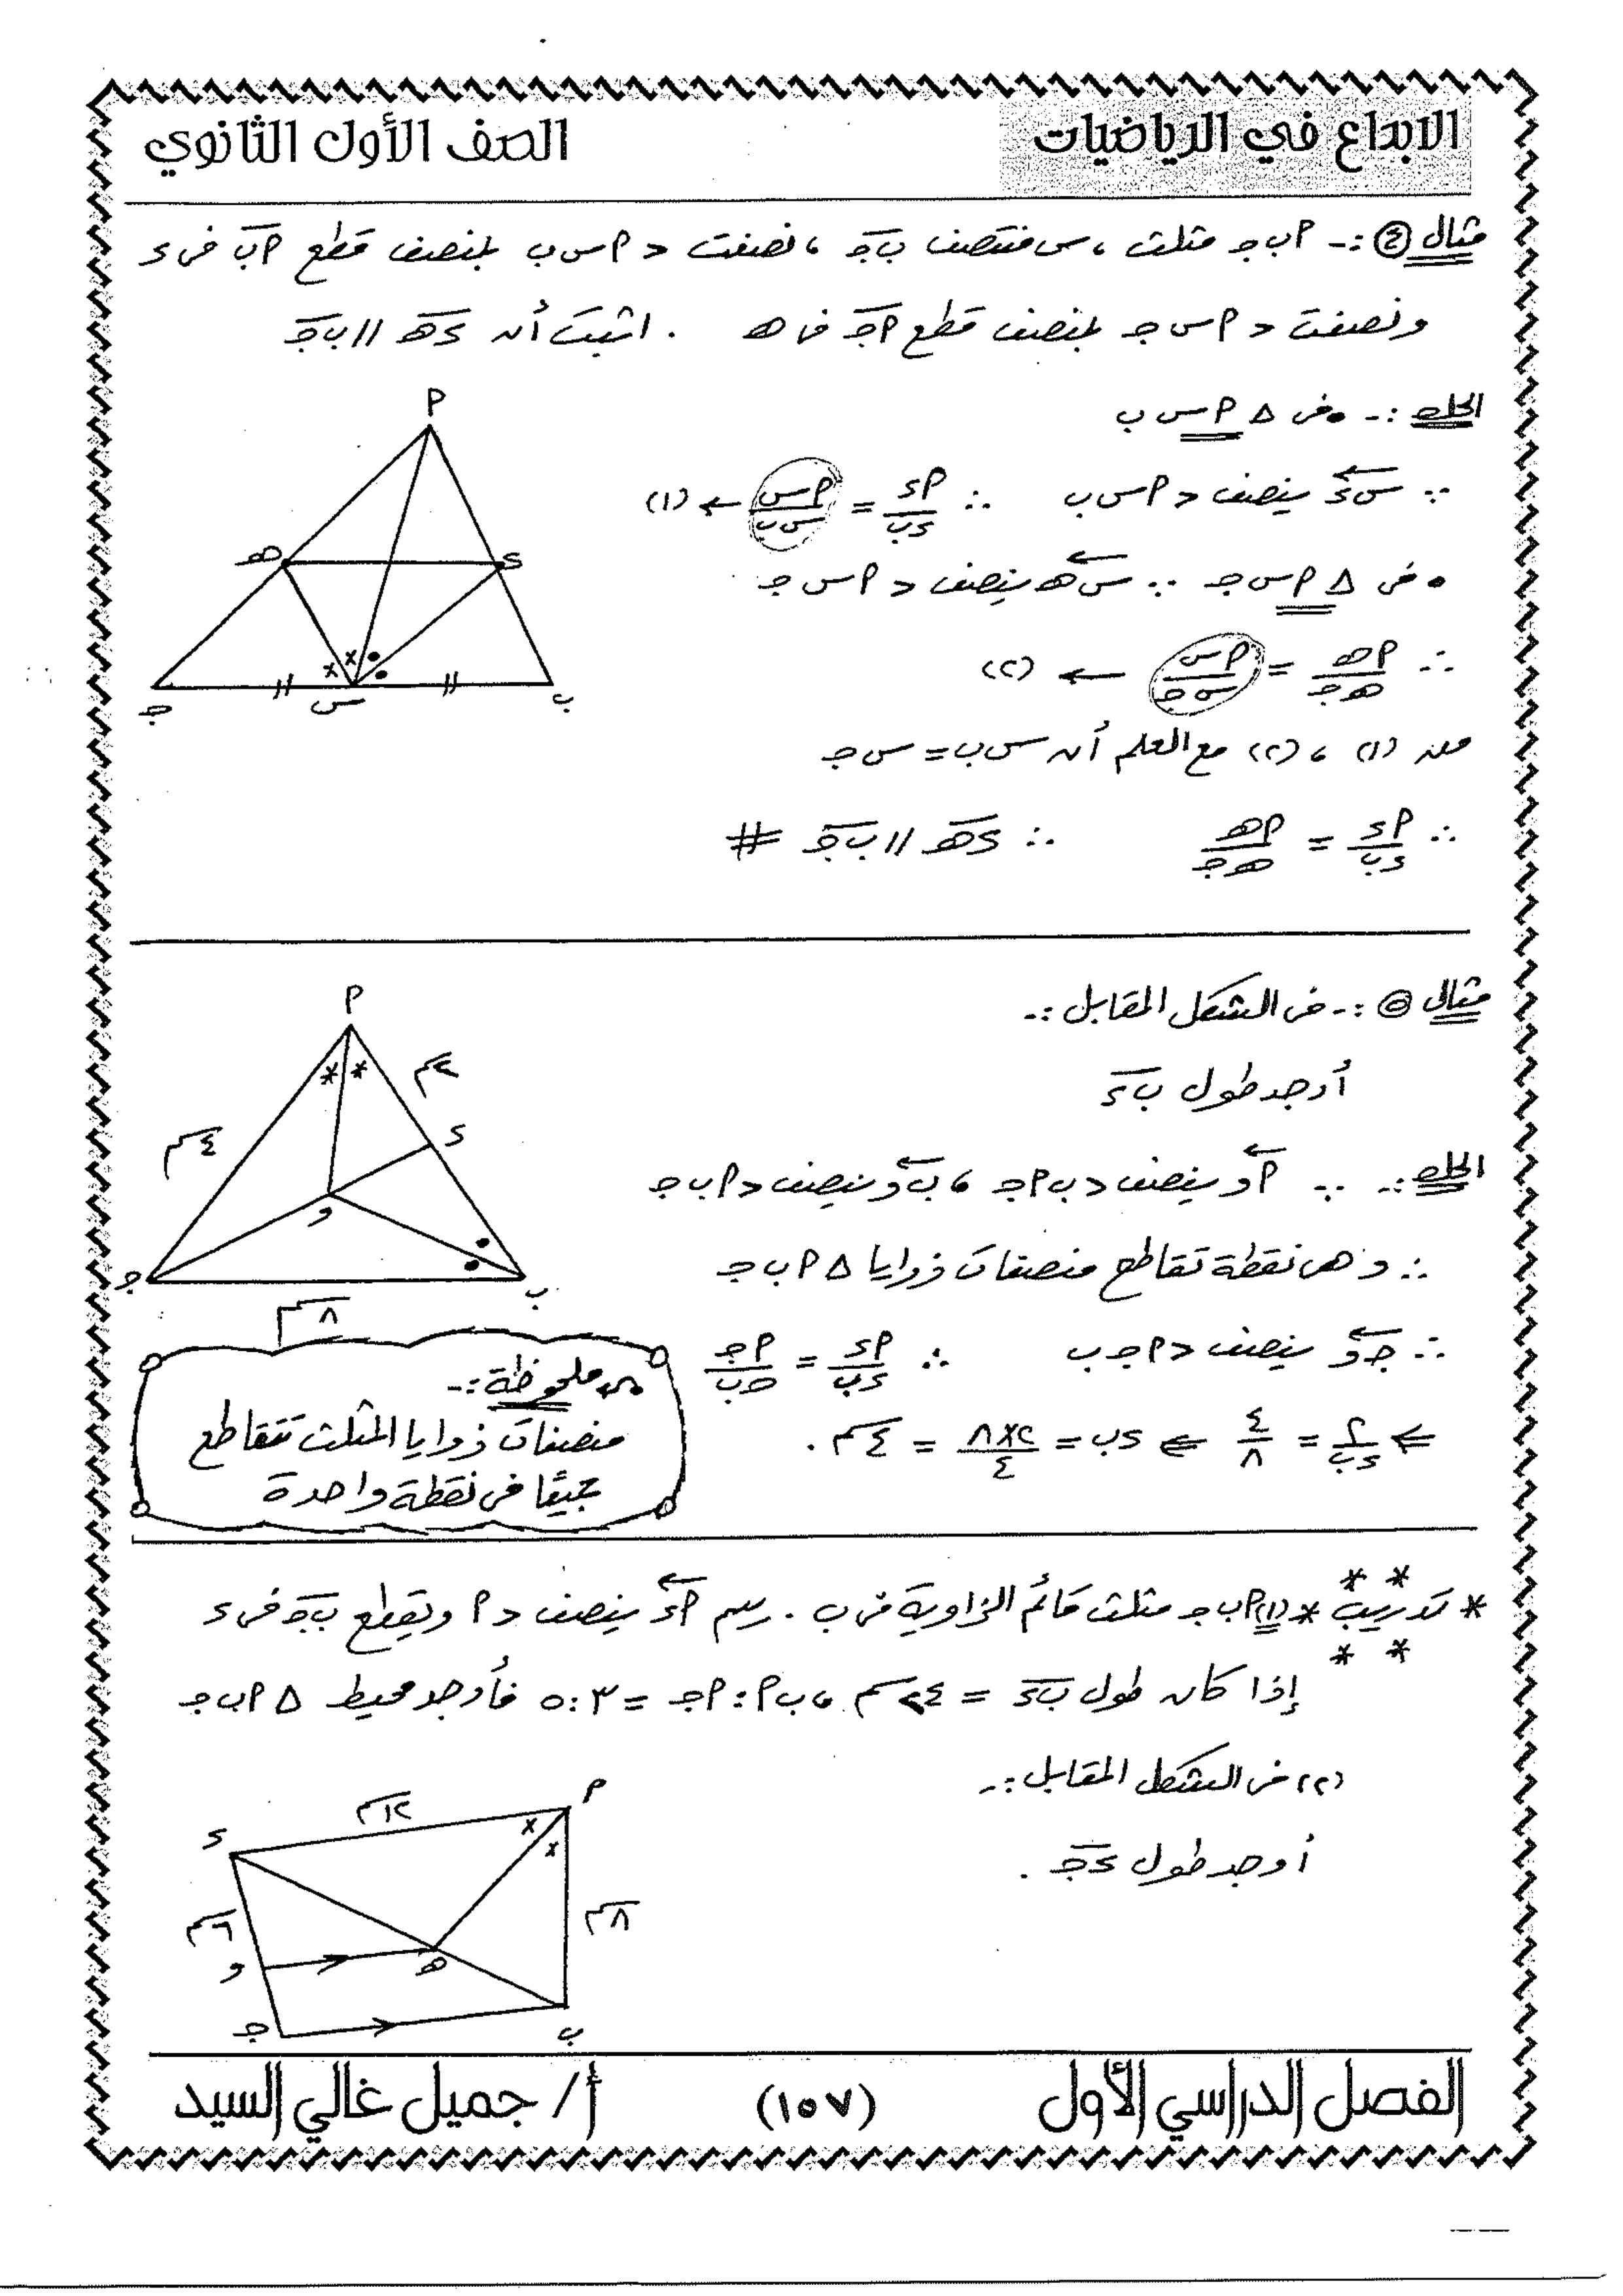 الابداع في الرياضيات
الصف الأول الثانوي
مثال (٤) :- أ ب جـ مثلث ، س منتصف ب جـ ، نصفت د أ س ب بمنصف قطع أ ب فى ء
ونصفت د أ س جـ بمنصف قطع أ جـ فى هـ . اثبت أن ء هـ // ب جـ
الحل :- • فى Δ أ س ب
∵ س ء ينصف د أ س ب ∴ أ ء / ء ب = أ س / س ب ← (١)
• فى Δ أ س جـ ∵ س هـ ينصف د أ س جـ
∴ أ هـ / هـ جـ = أ س / س جـ ← (٢)
من (١) ، (٢) مع العلم أن س ب = س جـ
∴ أ ء / ء ب = أ هـ / هـ جـ ∴ ء هـ // ب جـ #
أ
هـ
ء
× × • •
جـ
س
ب
مثال (٥) :- فى الشكل المقابل :-
أوجد طول ب ء
الحل :- ∵ أ و ينصف د ب أ جـ ، ب و ينصف د أ ب جـ
∴ و هى نقطة تقاطع منصفات زوايا Δ أ ب جـ
∴ جـ و ينصف د أ جـ ب ∴ أ ء / ء ب = أ جـ / جـ ب
⇐ ٢ / ء ب = ٤ / ٨ ⇐ ء ب = ٢×٨ / ٤ = ٤ سم .
أ
* *
٢ سم
٤ سم
ء
و
جـ
ب
٨ سم
ملحوظة :-
منصفات زوايا المثلث تتقاطع
جميعًا فى نقطة واحدة
* تدريب * (١) أ ب جـ مثلث قائم الزاوية فى ب . رسم أ ء ينصف د أ ويقطع ب جـ فى ء
إذا كان طول ب ء = ٢٤ سم ، ب أ : أ جـ = ٣ : ٥ فأوجد محيط Δ أ ب جـ
(٢) فى الشكل المقابل :-
أوجد طول ء جـ .
أ
١٢ سم
ء
× ×
٨ سم
٦ سم
و
هـ
جـ
ب
الفصل الدراسي الأول
(١٥٧)
أ / جميل غالي السيد